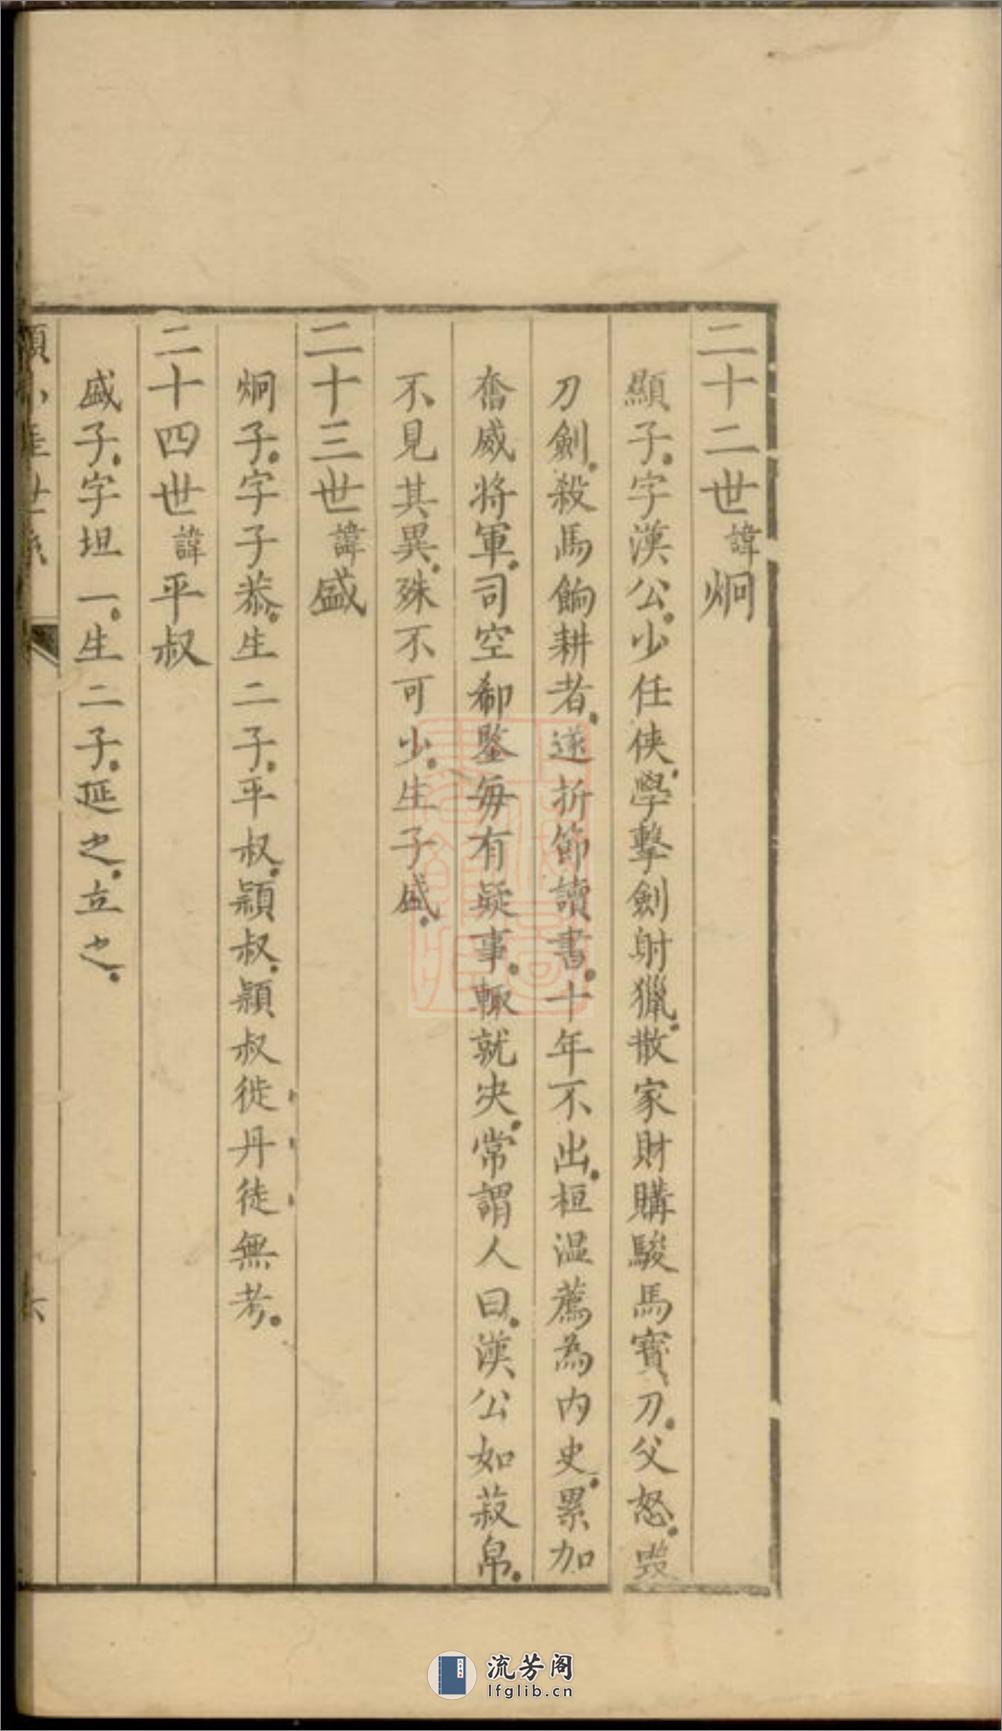 二十二世諱炯
顯子字漢公少任俠學擊劍射獵散家財購駿馬寶刀父怒毀
刀劍殺馬餉耕者遂折節讀書十年不出桓温薦為内史累加
奮威將軍司空郗鑒每有疑事輒就决常謂人曰漢公如菽帛
不見其異殊不可少生子盛
二十三世諱盛
炯子字子恭生二子平叔穎叔穎叔徙丹徒無考
二十四世諱平叔
盛子字坦一生二子延之立之
世系
六
流芳阁
lfglib.cn